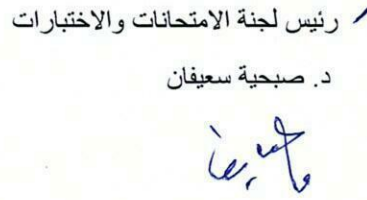 رئيس لجنة الامتحانات والاختبارات
د. صبحية سعيفان